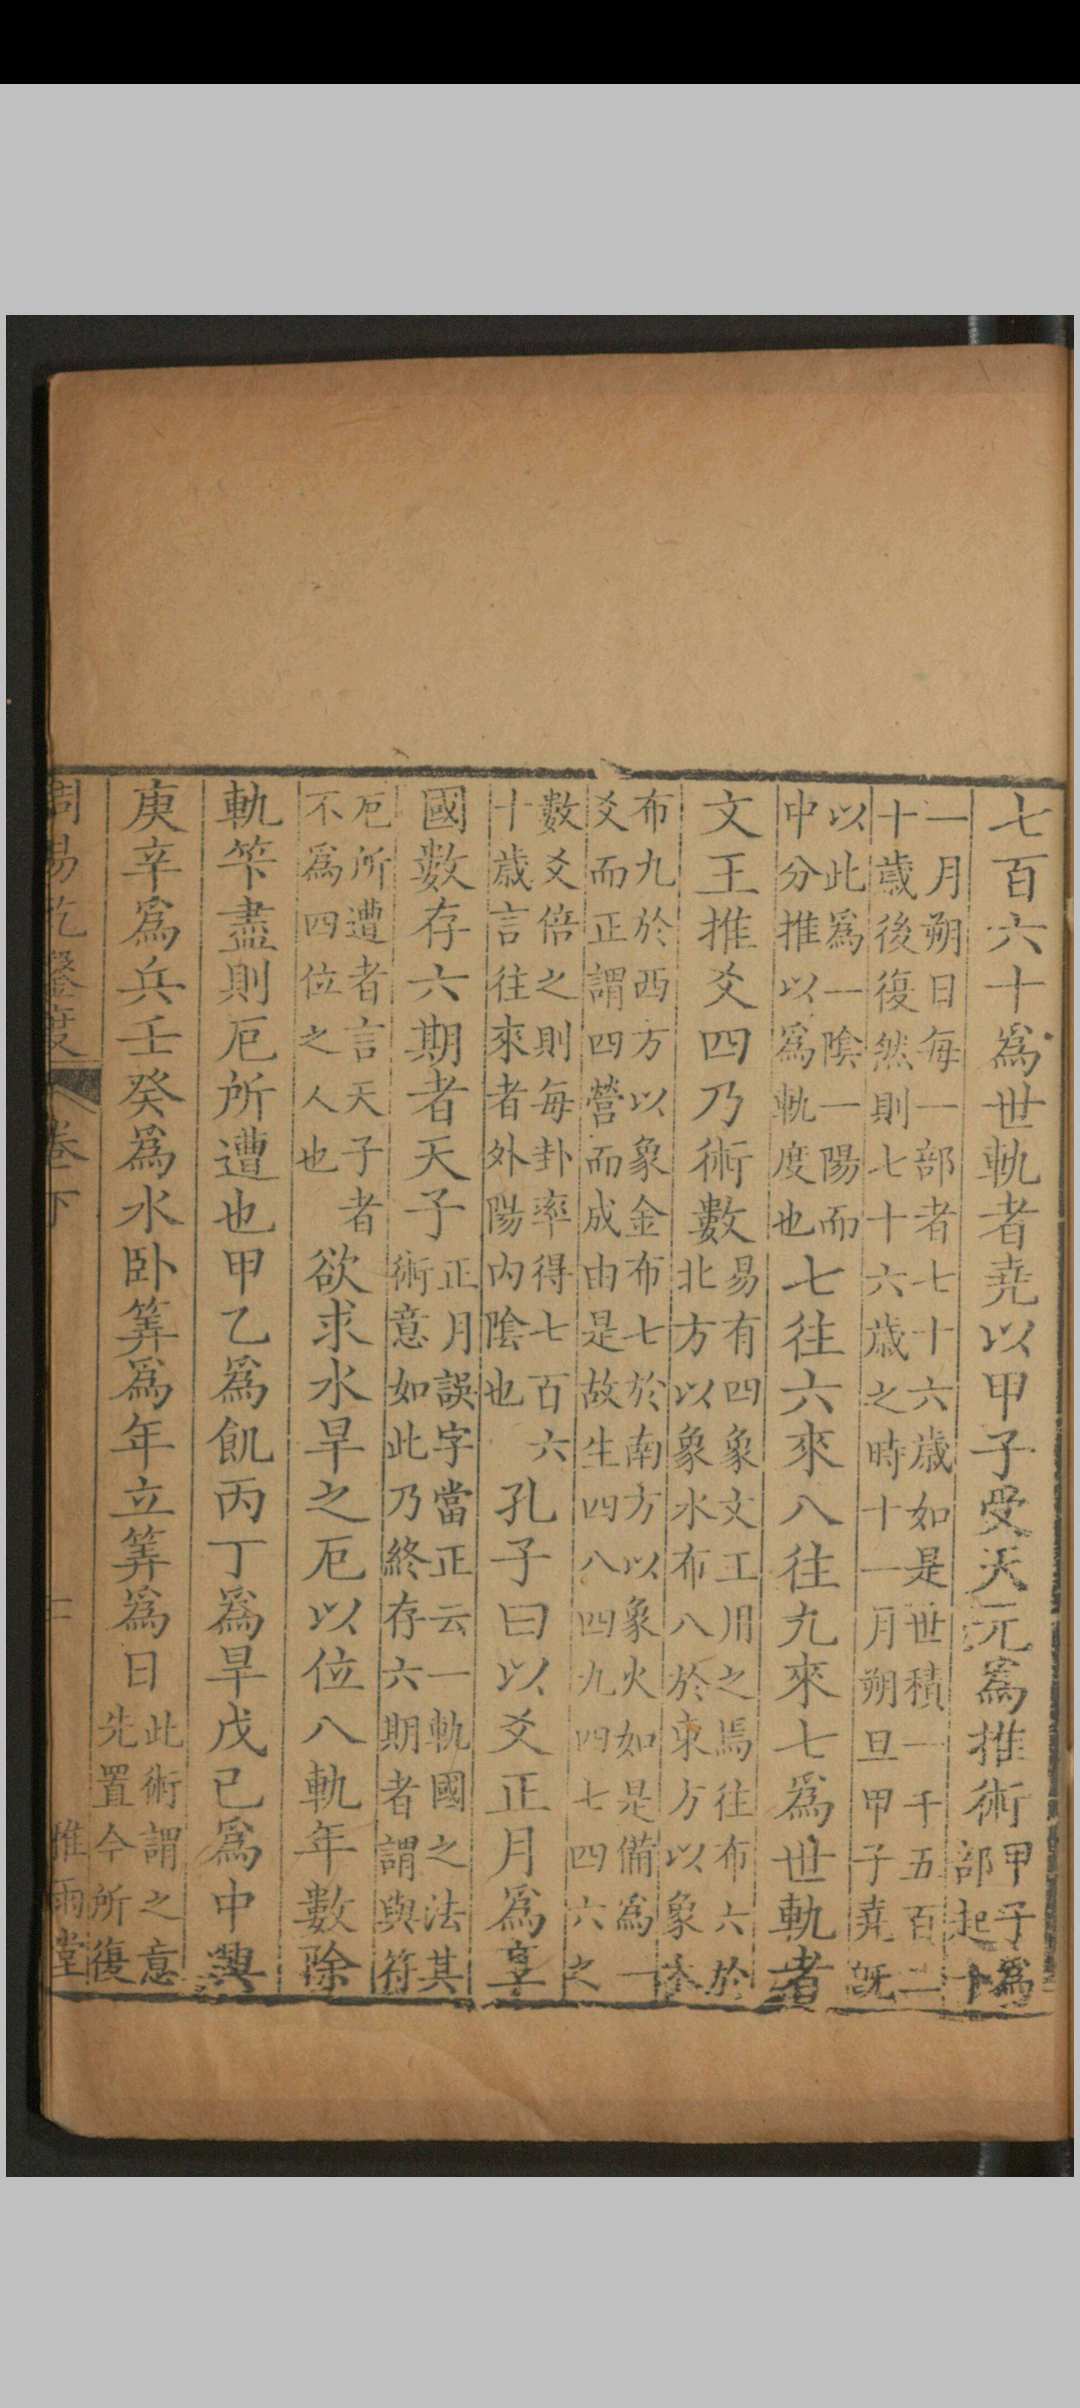 七百六十爲世軌者堯以甲子受天元爲推術甲子爲
部起十
一月朔日每一部者七十六歲如是世積一千五百二
十歲後復然則七十六歲之時十一月朔旦甲子堯既
以此爲一陰一陽而
中分推以爲軌度也
七往六來八往九來七爲世軌者
文王推爻四乃術數
易有四象文王用之焉往布六於
北方以象水布八於東方以象木
布九於西方以象金布七於南方以象火如是備爲一
爻而正謂四營而成由是故生四八四九四七四六之
數爻倍之則每卦率得七百六
十歲言往來者外陽內陰也
孔子曰以爻正月爲享
國數存六期者天子
正月誤字當正云一軌國之法其
術意如此乃終存六期者謂與符
厄所遭者言天子者
不爲四位之人也
欲求水旱之厄以位八軌年數除
軌笇盡則厄所遭也甲乙爲飢丙丁爲旱戊己爲中興
庚辛爲兵壬癸爲水卧筭爲年立筭爲日
此術謂之意
先置今所復
周易乾鑿度 卷下 雅雨堂